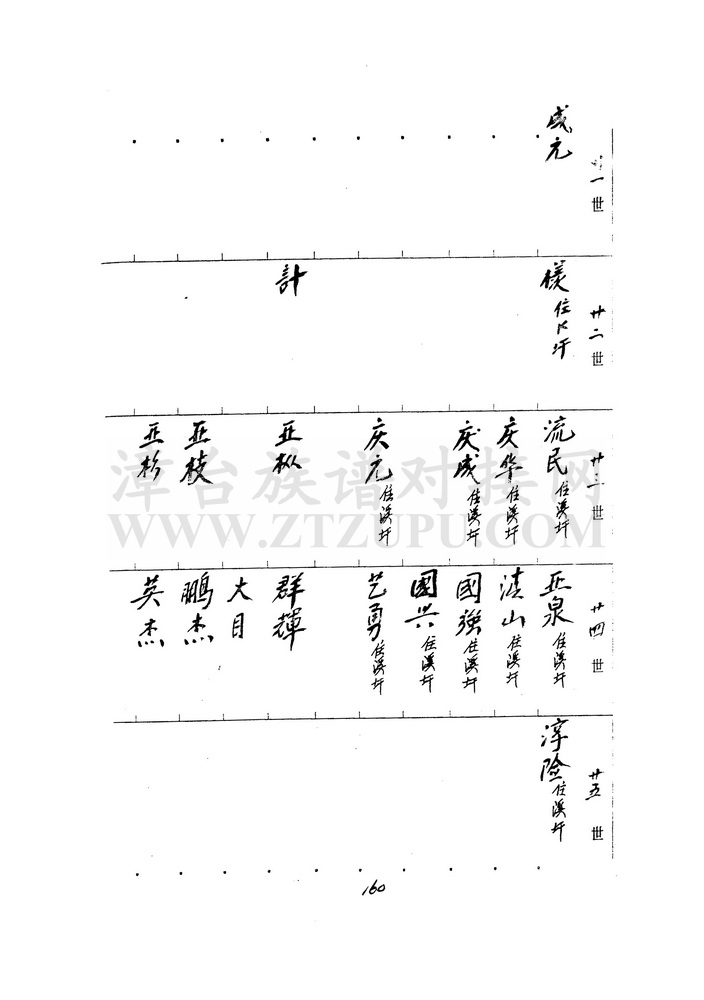 一世
成元
廿二世
樣 住下圩
計
廿三世
流民 住溪圩
庆华 住溪圩
庆成 住溪圩
庆元 住溪圩
亚枞
亚枝
亚杉
廿四世
亚泉 住溪圩
山 住溪圩
國強 住溪圩
國兴 住溪圩
艺勇 住溪圩
群輝
大目
鵬杰
英杰
廿五世
淳險 住溪圩
漳台族谱对接网
WWW.ZTZUPU.COM
160